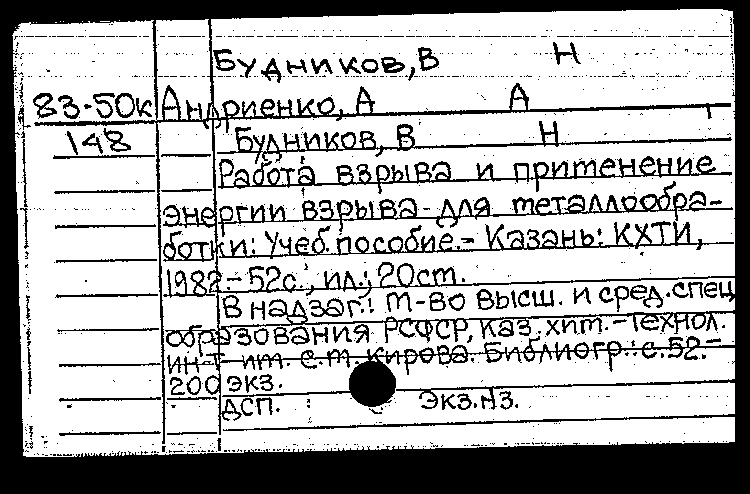 Будников, В Н
83-50к Андриенко, А А
148 Будников, В Н
Работа взрыва и применение
энергии взрыва для металлообра-
ботки: Учеб. пособие. - Казань: КХТИ,
1982. - 52с., ил.; 20ст.
В надзаг.: М-во высш. и сред. спец
образования РСФСР, Каз. хим.-технол.
ин-т им. С.М. Кирова. Библиогр.: с.52.-
200 экз.
ДСП. Экз.N3.